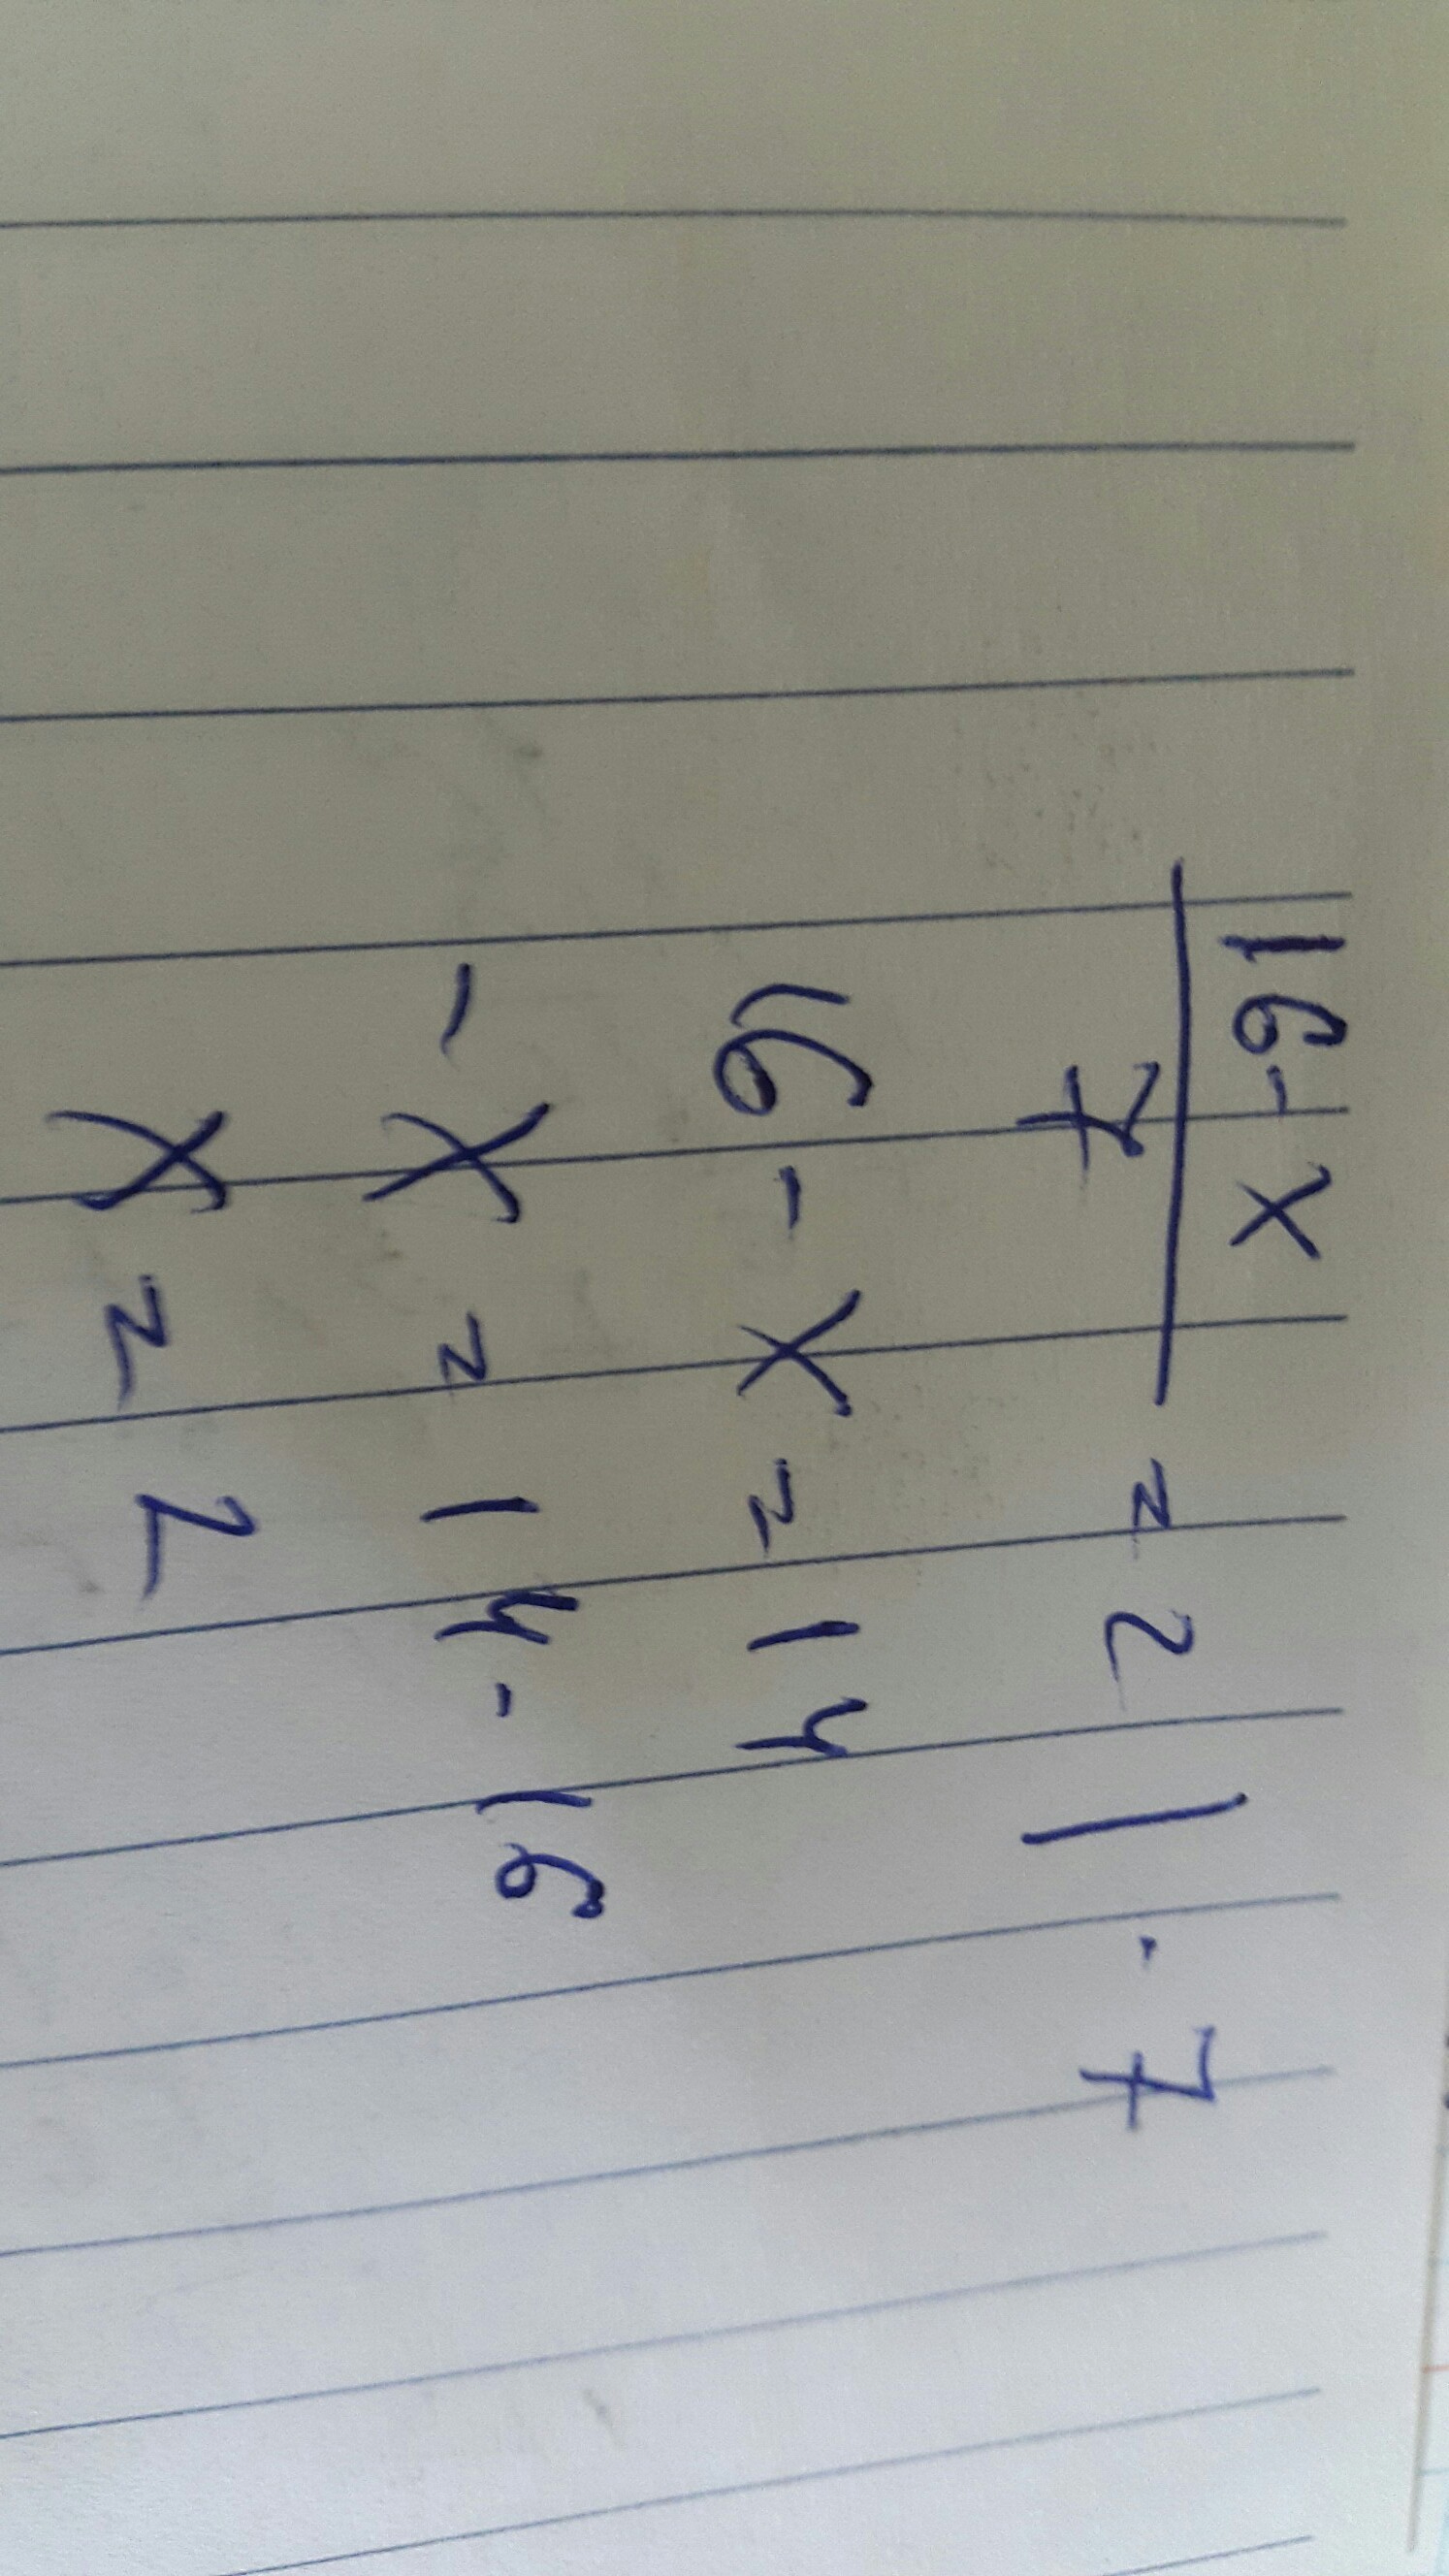 16-x
7 = 2 | · 7
16 - x = 14
- x = 14 - 16
x = 2